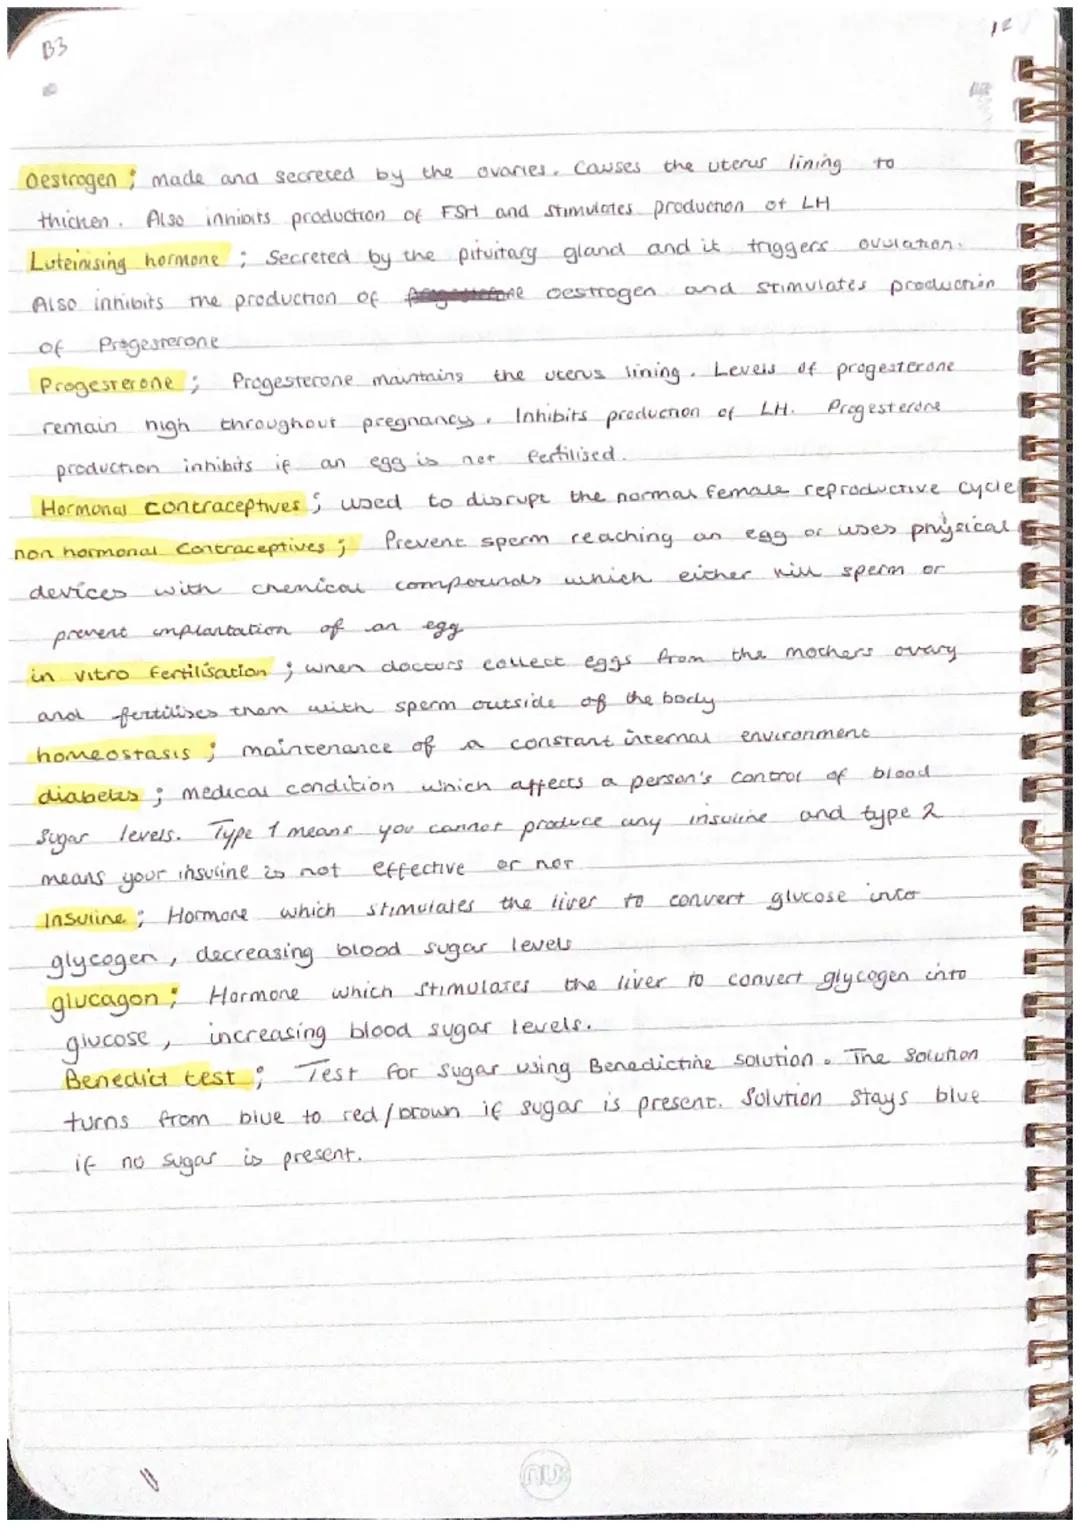 B3
12
Oestrogen ; made and secreted by the ovaries. Causes the uterus lining to
thicken. Also inhibits production of FSH and stimulates production of LH
Luteinising hormone ; Secreted by the pituitary gland and it triggers ovulation.
Also inhibits the production of oestrogen and stimulates production
of Progesterone
Progesterone ; Progesterone maintains the uterus lining. Levels of progesterone
remain high throughout pregnancy. Inhibits production of LH. Progesterone
production inhibits if an egg is not fertilised.
Hormonal contraceptives ; used to disrupt the normal female reproductive cycle
non hormonal Contraceptives ; Prevent sperm reaching an egg or uses physical
devices with chemical compounds which either kill sperm or
prevent implantation of an egg
in vitro fertilisation ; when doctors collect eggs from the mothers ovary
and fertilises them with sperm outside of the body
homeostasis ; maintenance of a constant internal environment
diabetes ; medical condition which affects a person's control of blood
sugar levels. Type 1 means you cannot produce any insuline and type 2
means your insuline is not effective or not
Insuline ; Hormone which stimulates the liver to convert glucose into
glycogen, decreasing blood sugar levels
glucagon ; Hormone which stimulates the liver to convert glycogen into
glucose, increasing blood sugar levels.
Benedict test ; Test for sugar using Benedictine solution. The solution
turns from blue to red/brown if sugar is present. Solution stays blue
if no sugar is present.
nu: